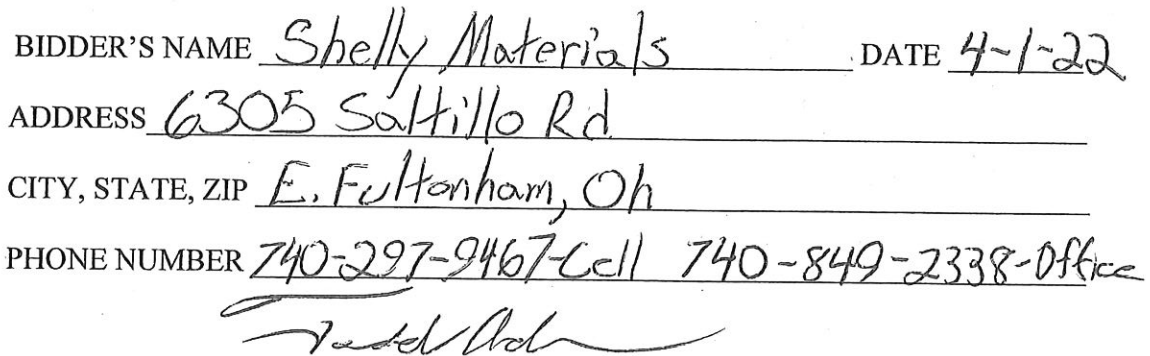 BIDDER'S NAME Shelly Materials DATE 4-1-22
ADDRESS 6305 Saltillo Rd
CITY, STATE, ZIP E. Fultonham, Oh
PHONE NUMBER 740-297-9467-Cell 740-849-2338-Office